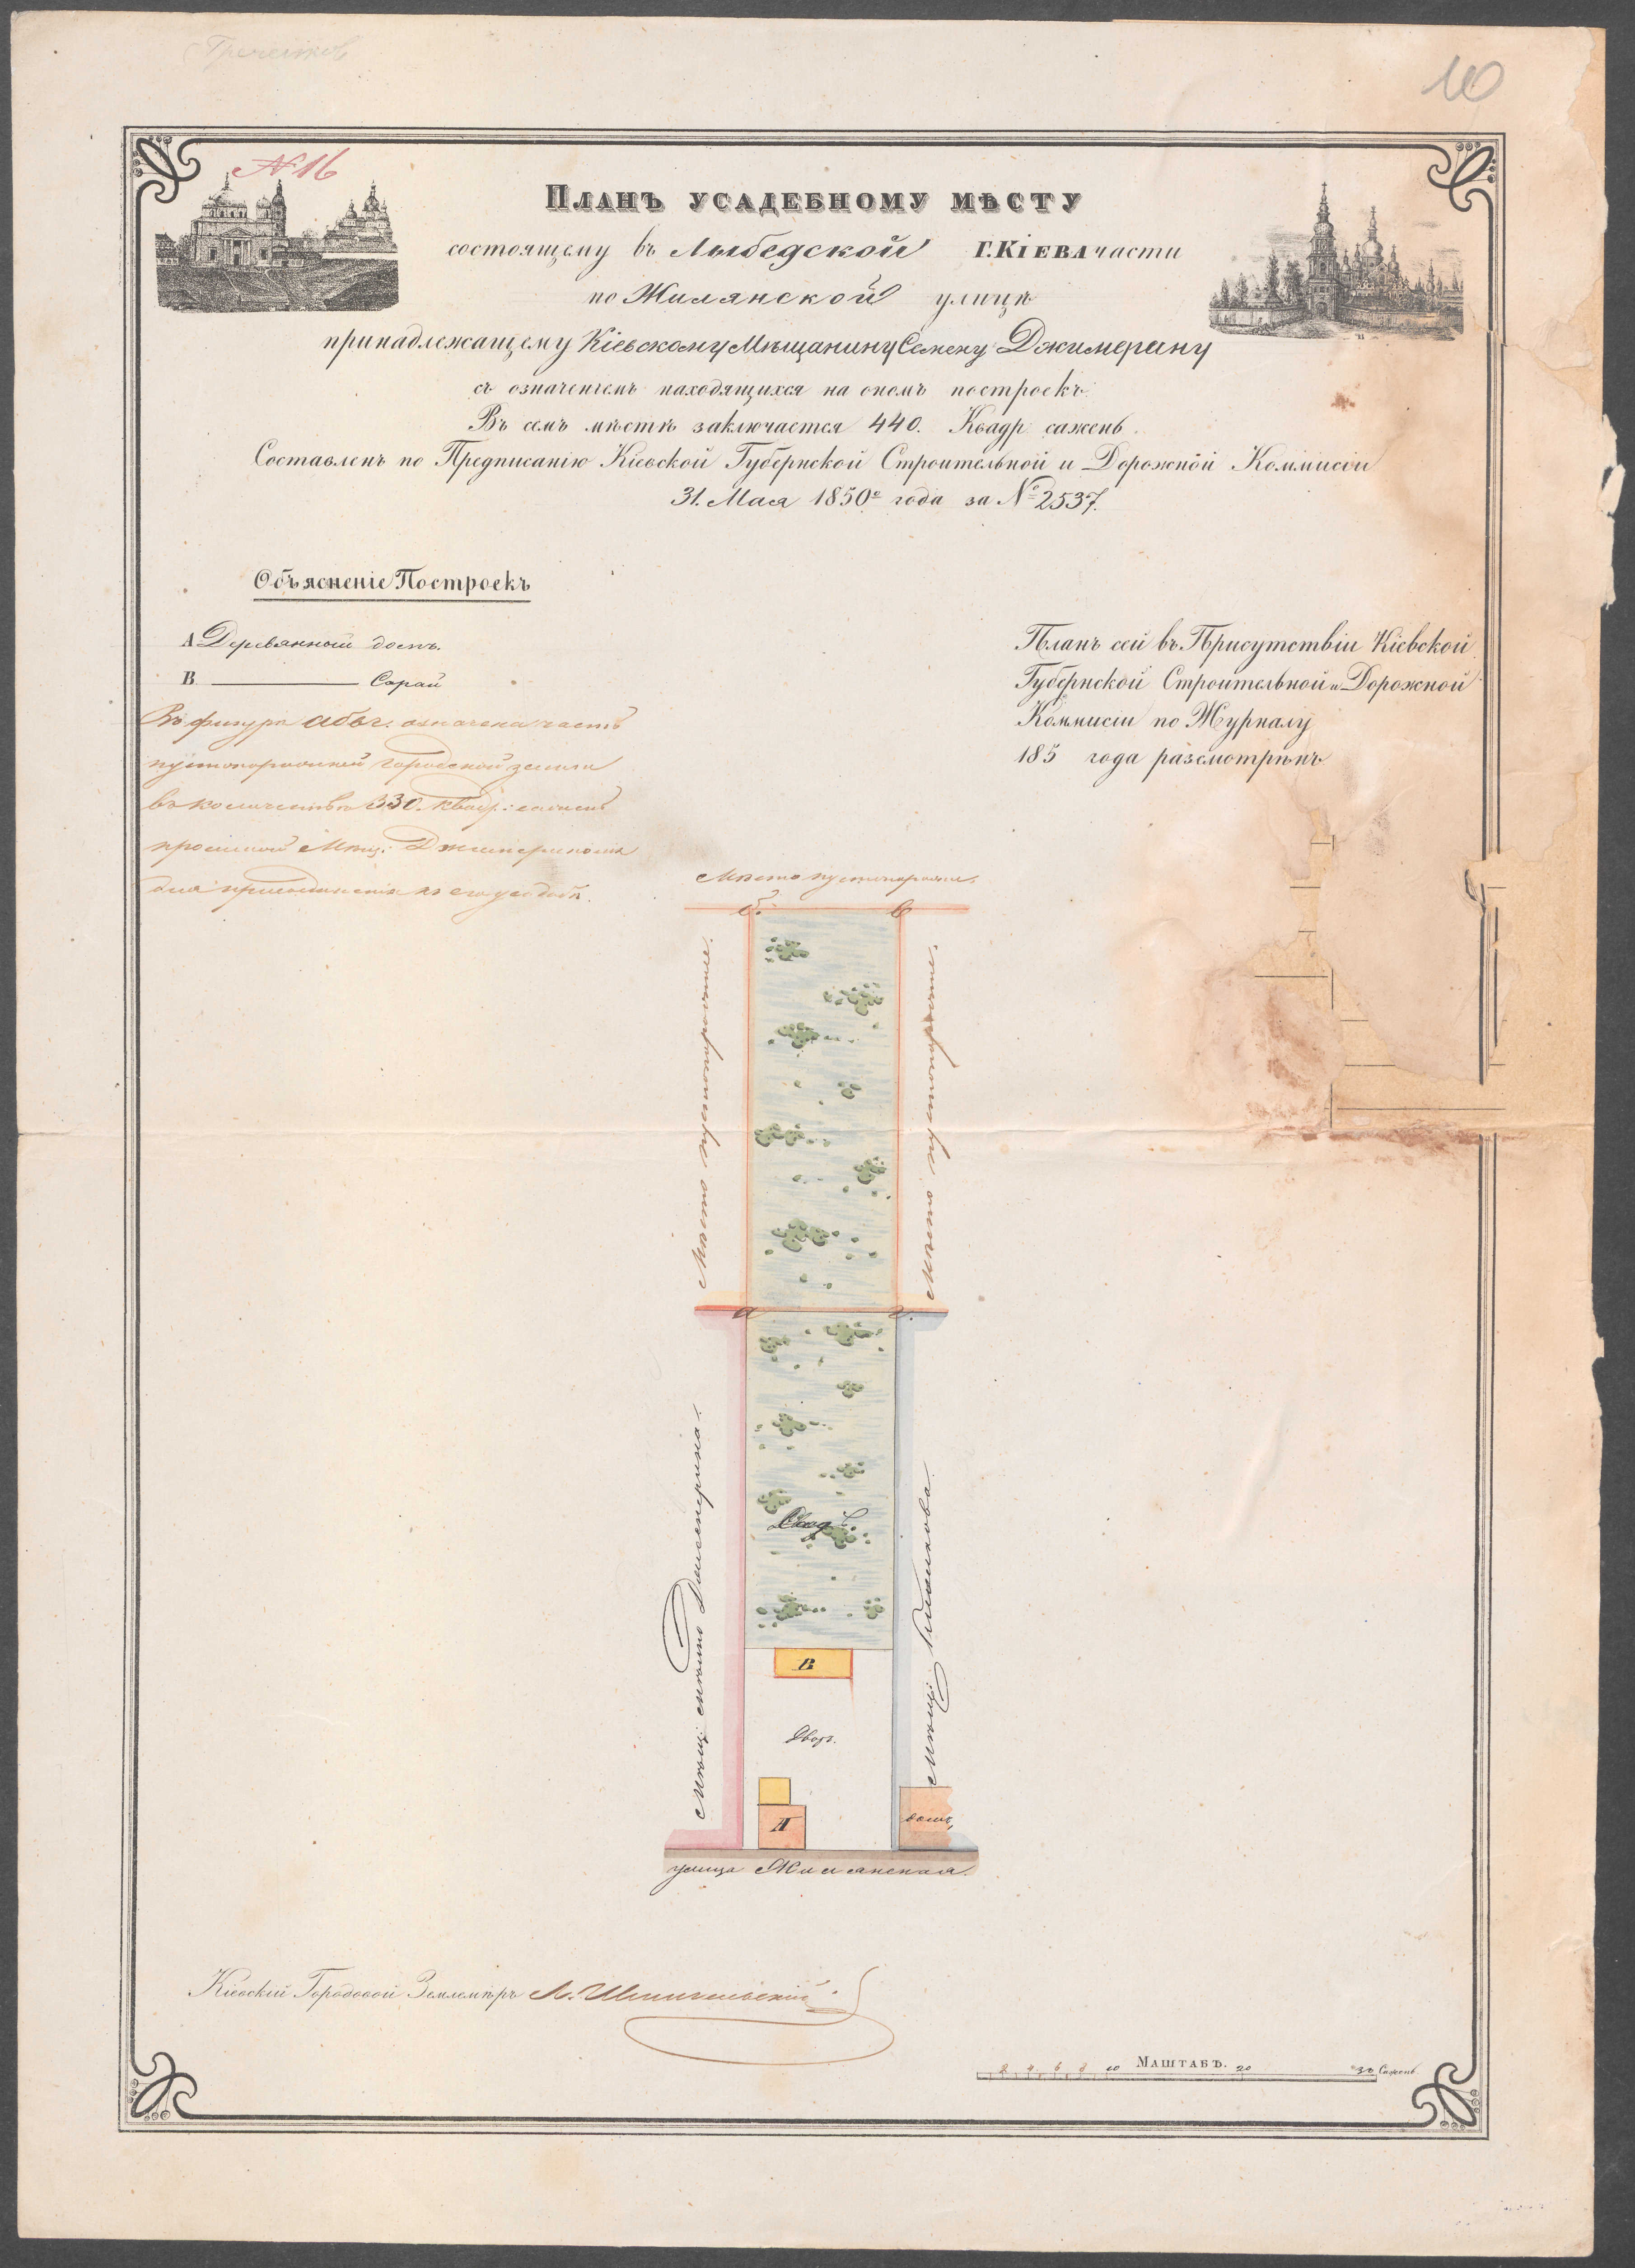 10
№ 16
Планъ усадебному мѣсту
состоящему въ Лыбедской Г. Кіева части
по Жилянской улицѣ
принадлежащему Кіевскому Мѣщанину Семену Джимерину
съ означеніемъ находящихся на ономъ построекъ.
Въ семъ мѣстѣ заключается 440. Квадр. сажень.
Составленъ по Предписанію Кіевской Губернской Строительной и Дорожной Коммисіи
31. Мая 1850го года за № 2537.
Объясненіе Построекъ
А Деревянный домъ.
В ——— Сарай
Въ фигурѣ абвг. означена часть
пустопорожней городской земли
въ количествѣ 330. квад: сажень
просимой Мѣщ: Джимеринымъ
для присоединенія къ его усадьбѣ.
Планъ сей въ Присутствіи Кіевской
Губернской Строительной и Дорожной
Коммисіи по Журналу
185 года разсмотрѣнъ
Мѣсто пустопорожнее
б. в
Мѣсто пустопорожнее.
Мѣсто пустопорожнее.
а г.
Мѣщ: мѣсто Джимерина.
Садъ
Мѣщ:
В
Дворъ.
А
домъ,
улица Жилянская.
Кіевскій Городовой Землемѣръ
Маштабъ.
2 4 6 8 10 20 30 Сажень